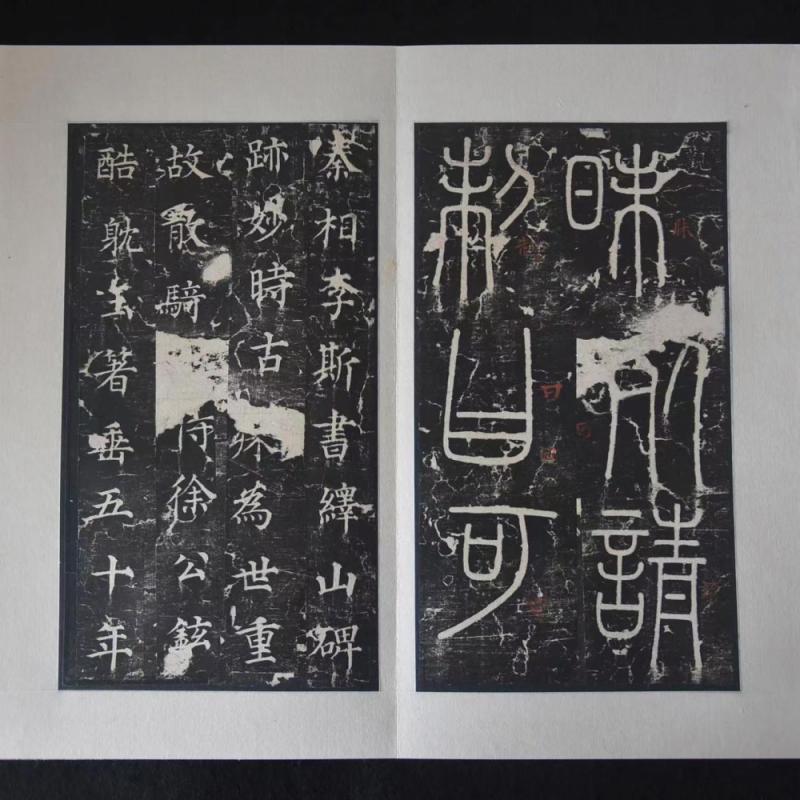 昧死請
制曰可
秦相李斯書繹山碑
跡妙時古殊為世重
故散騎侍徐公鉉
酷耽玉著垂五十年